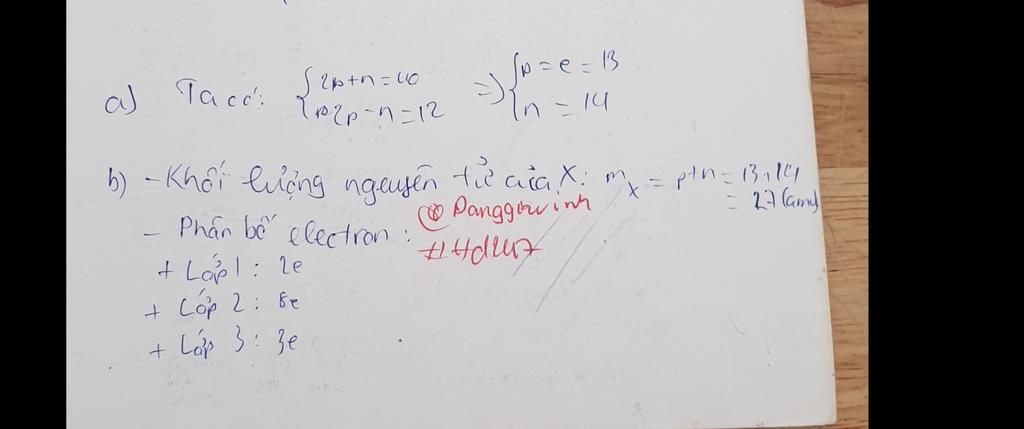 a) Ta có: { 2p+n=40 => { p=e=13
2p-n=12 n=14
b) - Khối lượng nguyên tử của X: mX = p+n = 13+14
= 27(amu)
- Phân bố electron:
+ Lớp 1: 2e
+ Lớp 2: 8e
+ Lớp 3: 3e